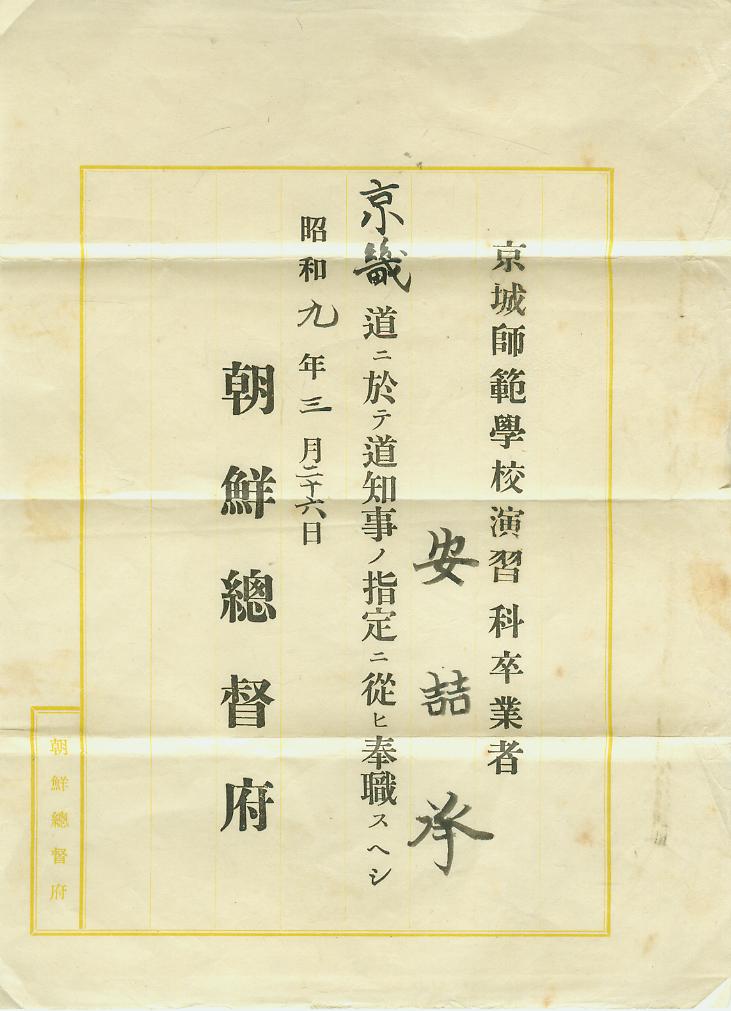 京城師範學校演習科卒業者
安喆承
京畿道ニ於テ道知事ノ指定ニ從ヒ奉職スヘシ
昭和九年三月二十六日
朝鮮總督府
朝鮮總督府